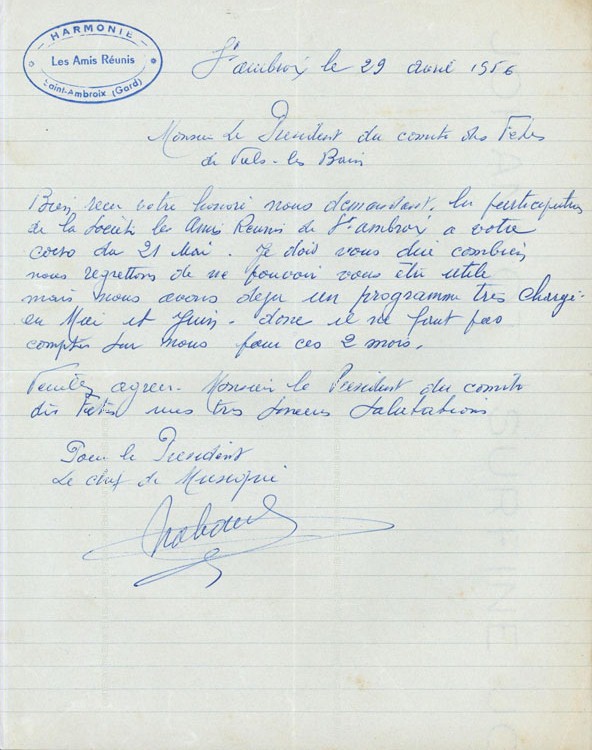 HARMONIE
Les Amis Réunis
Saint-Ambroix (Gard)
St ambroix le 29 avril 1956
Monsieur Le President du comité des Fetes
de Vals-les Bains
Bien recu votre honoré nous demandant la participation
de la Société les Amis Reunis de St ambroix a votre
corso du 21 Mai. Je dois vous dire combien
nous regrettons de ne pouvoir vous être utile
mais nous avons deja un programme très chargé.
en Mai et Juin. donc il ne faut pas
compter sur nous pour ces 2 mois.
Veuillez agreer. Monsieur le President du comité
des Fêtes mes tres sinceres salutations
Pour le President
Le chef de Musique